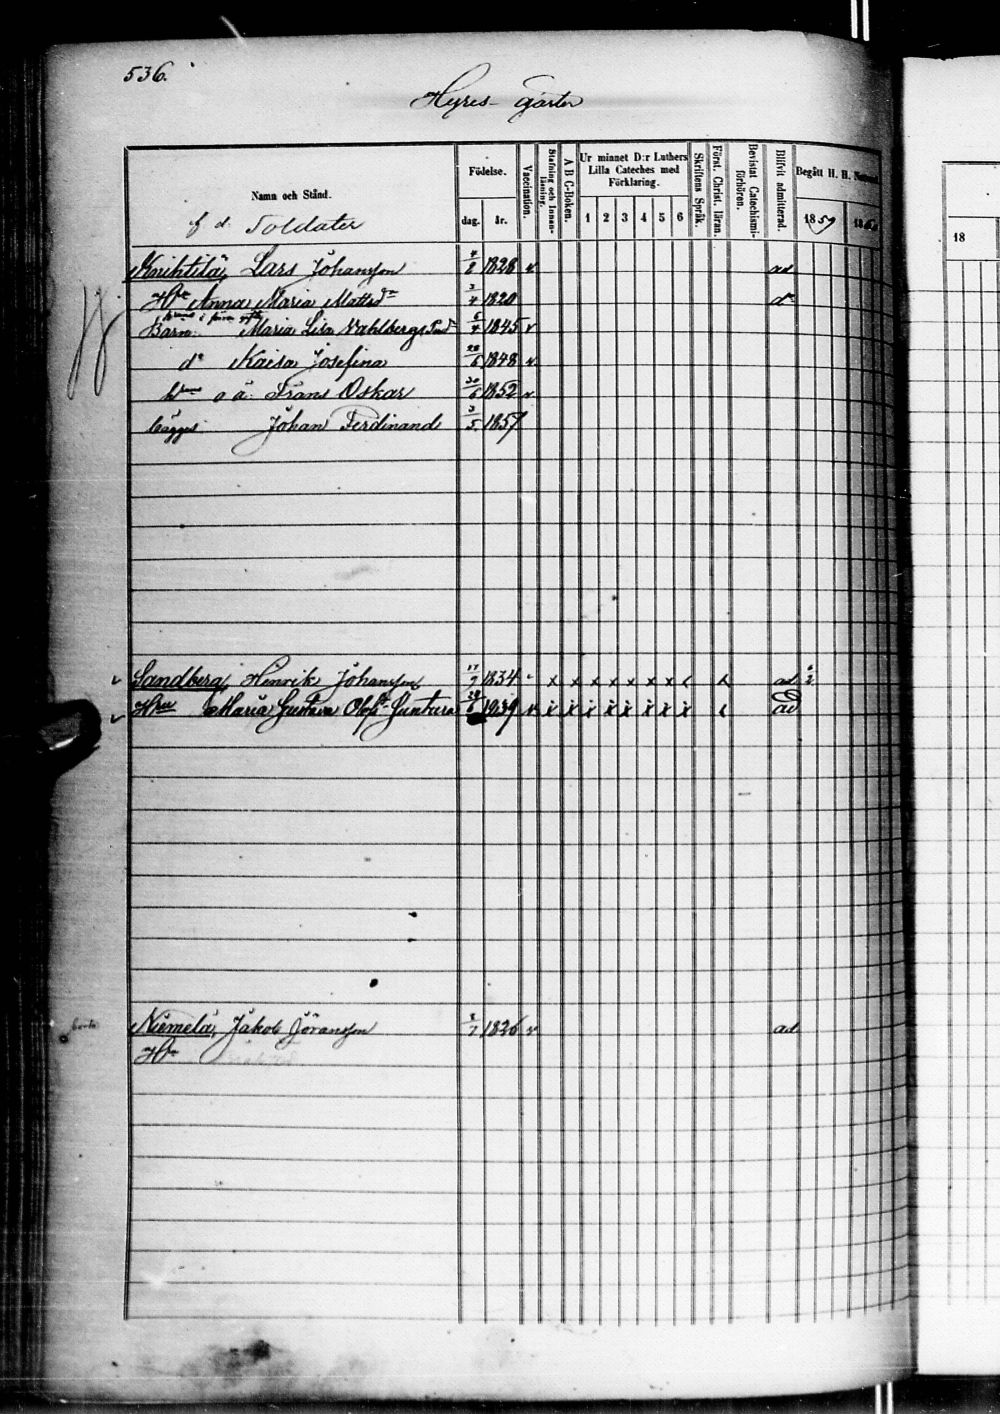 536.
Hyres- gäster
Namn och Stånd.
f. d. Soldater
Födelse.
dag. år.
Vaccination.
Stafning och Innanläsning.
A B C-Boken.
Ur minnet D:r Luthers Lilla Cateches med Förklaring.
1 2 3 4 5 6
Skriftens Språk.
Först. Christ. läran.
Bevistat Catechismiförhören.
Blifvit admitterad.
Begått H. H.
1859
18
Knihtilä, Lars Johansson 4/8 1828 v ad
Hu Anna Maria Mattsdr 3/4 1820 do
Barn: Maria Lisa Vahlberg 5/4 1845 v
do Kaisa Josefina 28/6 1848 v
o ä. Frans Oskar 30/6 1852 v
bägges Johan Ferdinand 3/5 1857
Sandberg, Henrik Johansson 17/7 1834 x x x x x x x ad
Hru Maria Gustava Olofsdr 1839 v x x x x x x x x ad
borta
Niemelä, Jakob Göransson 3/7 1826 v ad
Hu
18